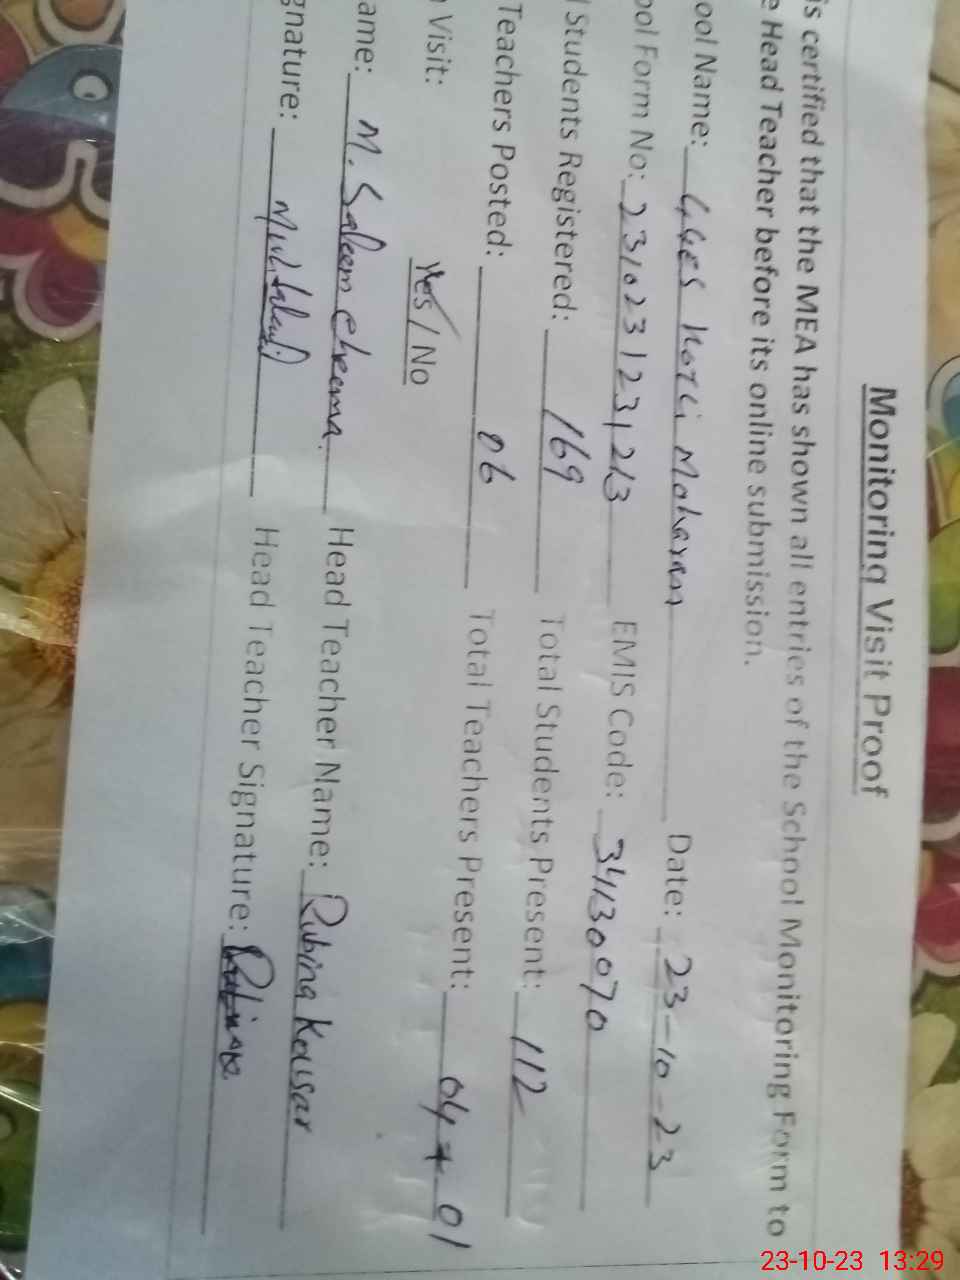 Monitoring Visit Proof
is certified that the MEA has shown all entries of the School Monitoring Form to
e Head Teacher before its online submission.
ool Name: GGES Kotli Moharam Date: 23-10-23
ool Form No: 2310231231213 EMIS Code: 34130070
l Students Registered: 169 Total Students Present: 112
Teachers Posted: 06 Total Teachers Present: 04+01
Visit: Yes / No
ame: M. Saleem Cheema. Head Teacher Name: Rubina Kousar
gnature: Head Teacher Signature: Rubina
23-10-23 13:29